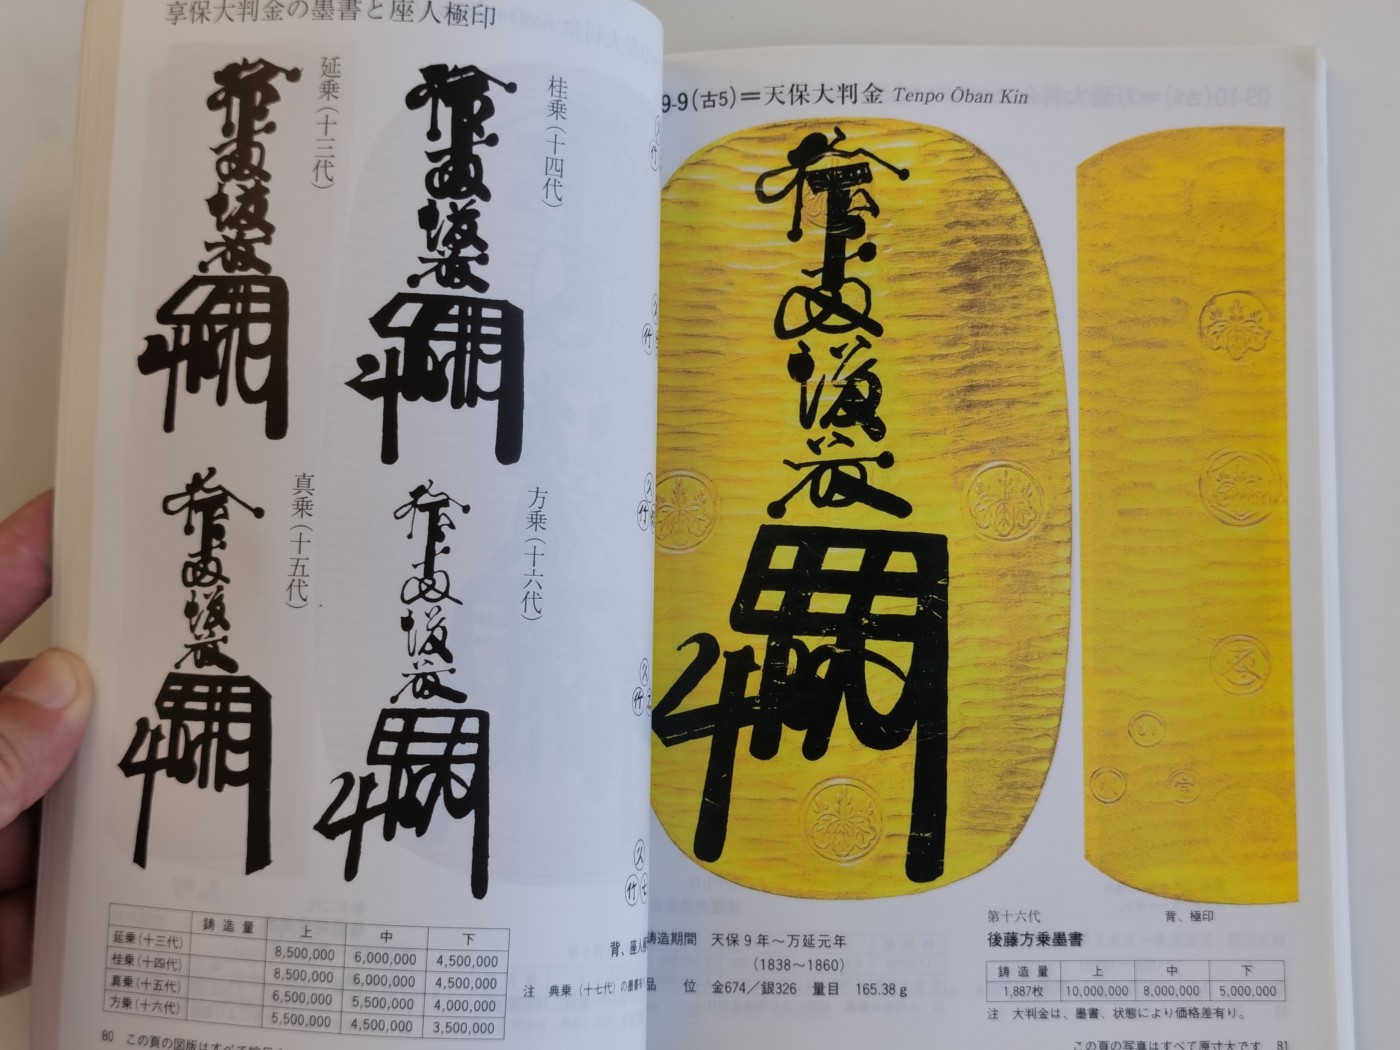 享保大判金の墨書と座人極印
延乗（十三代）
桂乗（十四代）
真乗（十五代）
方乗（十六代）
鋳造量 上 中 下
延乗（十三代） 8,500,000 6,000,000 4,500,000
桂乗（十四代） 8,500,000 6,000,000 4,500,000
真乗（十五代） 6,500,000 5,500,000 4,000,000
方乗（十六代） 5,500,000 4,500,000 3,500,000
背、座人
注 典乗（十七代）の墨書
80 この頁の図版はすべて
9-9（古5）＝天保大判金 Tenpo Ōban Kin
鋳造期間 天保9年～万延元年
（1838～1860）
品位 金674／銀326 量目 165.38g
第十六代 背、極印
後藤方乗墨書
鋳造量 上 中 下
1,887枚 10,000,000 8,000,000 5,000,000
注 大判金は、墨書、状態により価格差有り。
この頁の写真はすべて原寸大です 81